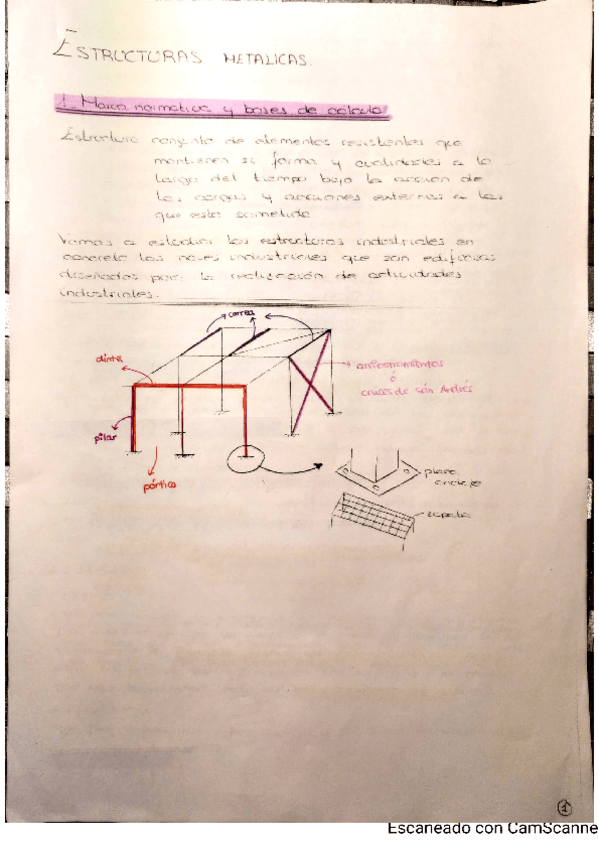 ESTRUCTURAS METALICAS.
1. Marco normativo y bases de cálculo
Estructura conjunto de elementos resistentes que
mantienen su forma y cualidades a lo
largo del tiempo bajo la acción de
las cargas y acciones externas a las
que esta sometido
Vamos a estudiar las estructuras industriales en
concreto las naves industriales que son edificios
diseñados para la realización de actividades
industriales.
correa
dintel
arriostramientos
ó
cruces de San Andrés
pilar
pórtico
placa
anclaje
zapata
1
Escaneado con CamScanne